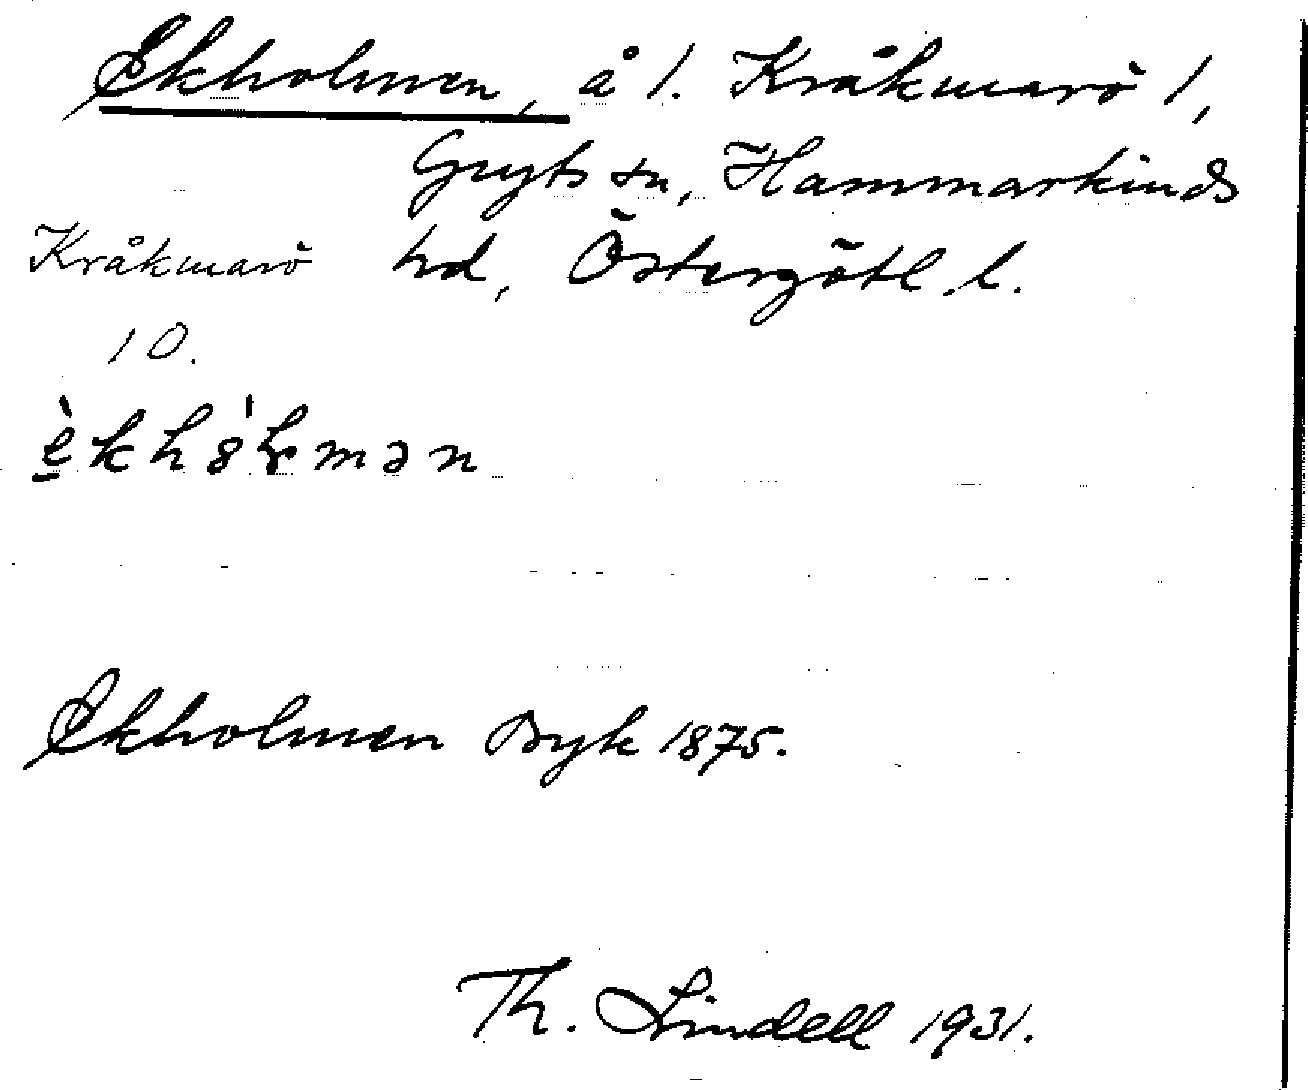 Ekholmen, å l. Kråkmarö 1,
Gryts sn, Hammarkinds
Kråkmarö hd, Östergötl. l.
10.
Ekholmen Byk 1875.
Th. Lindell 1931.